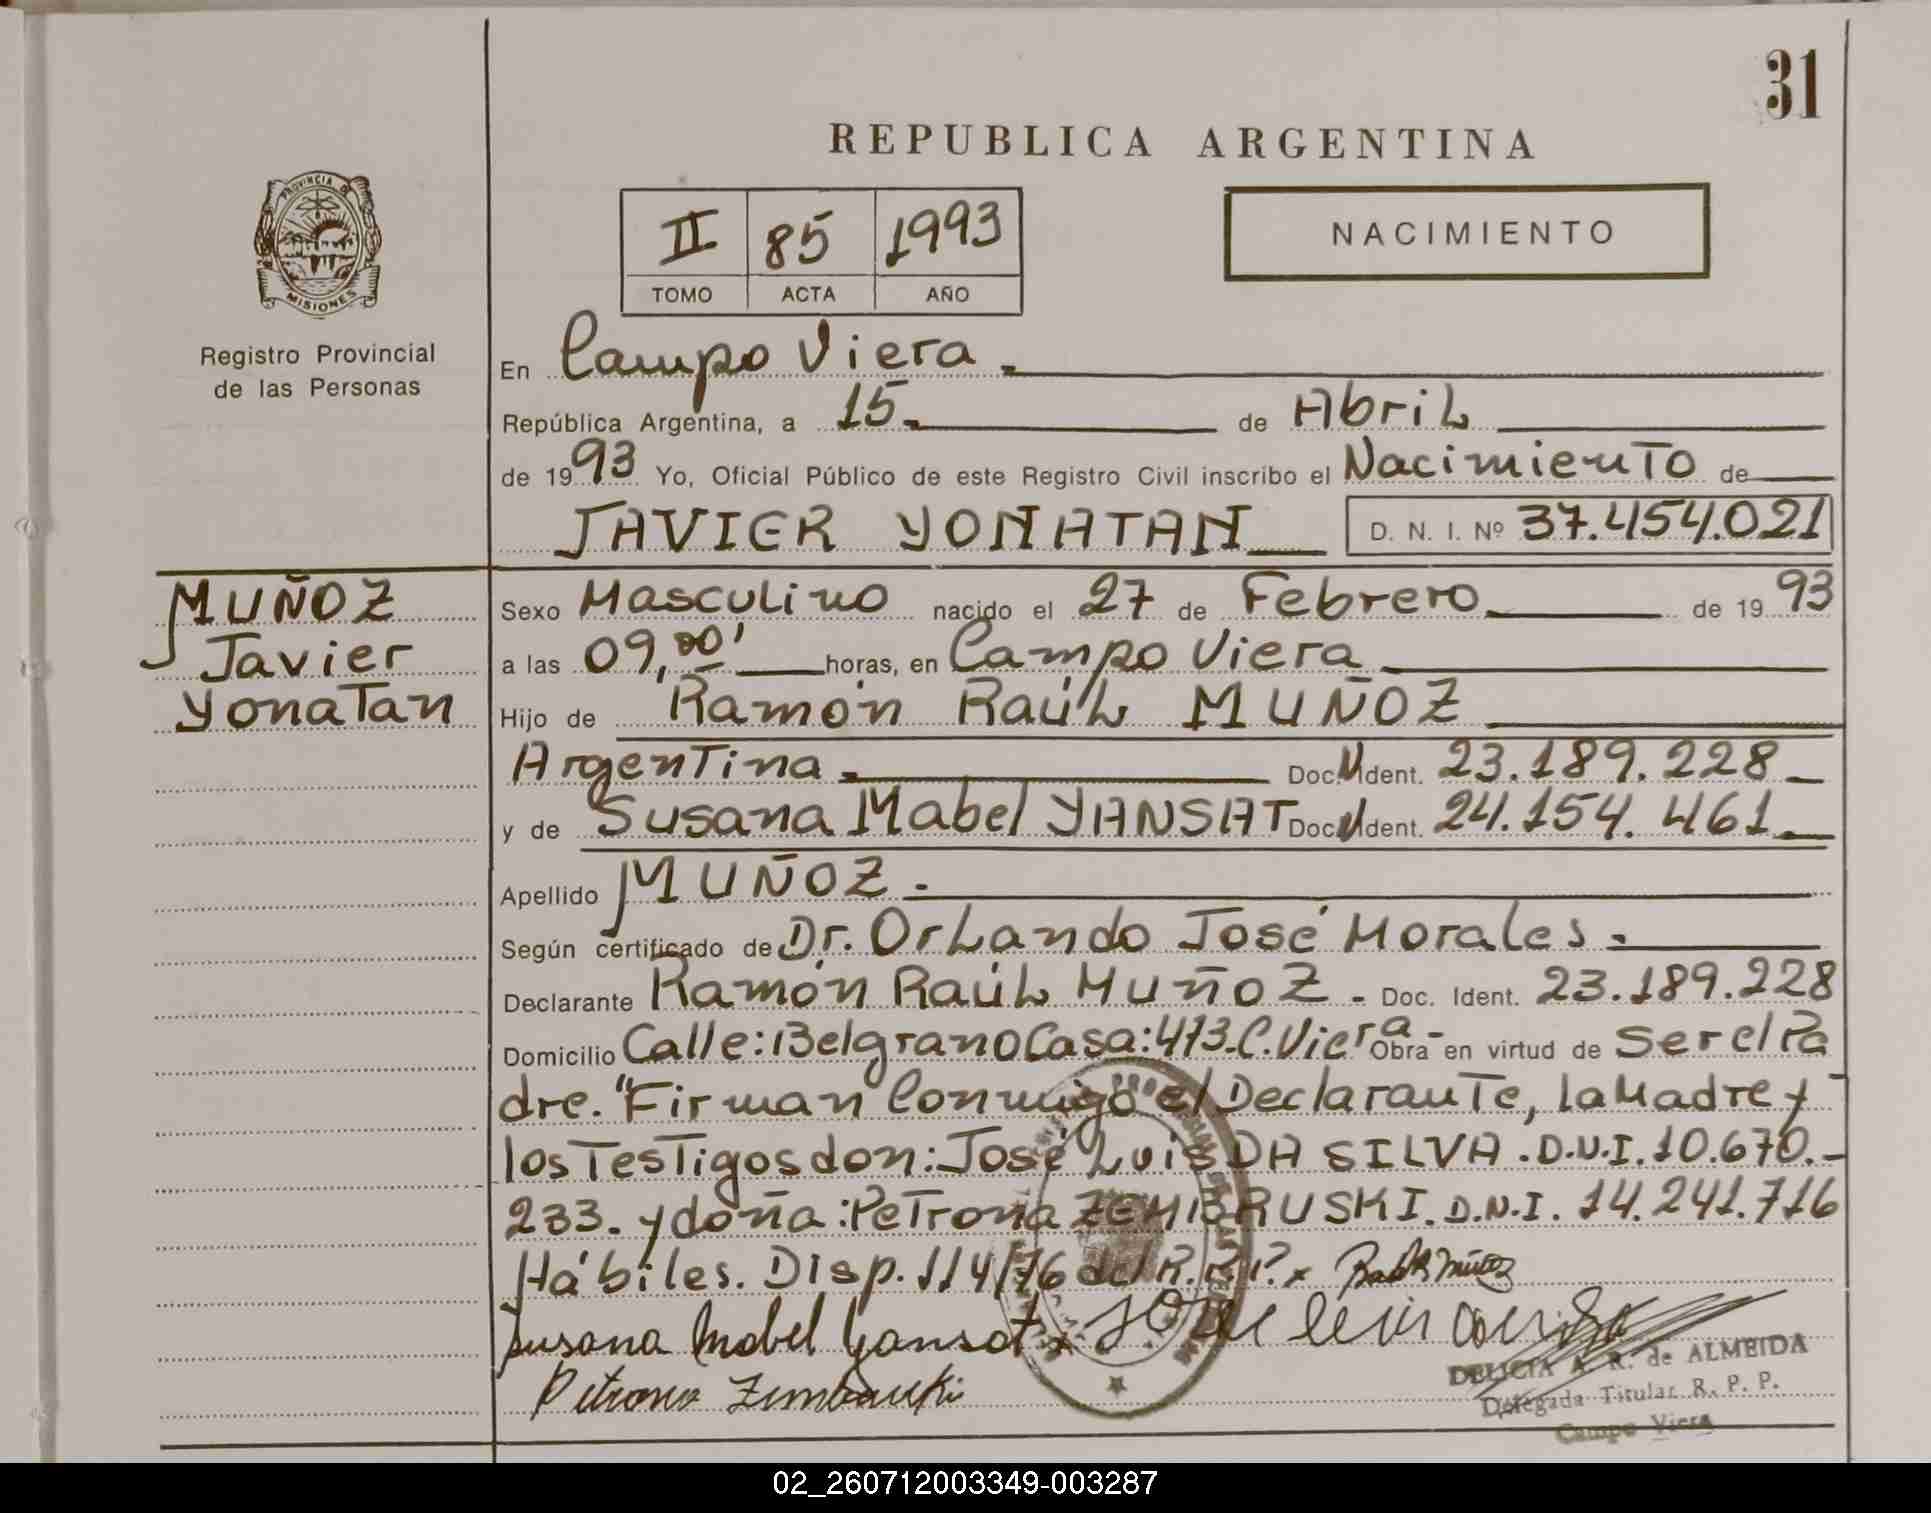 31
REPUBLICA ARGENTINA
PROVINCIA D
MISIONES
Registro Provincial
de las Personas
II 85 1993
TOMO ACTA AÑO
NACIMIENTO
En Campo Viera
República Argentina, a 15 de Abril
de 1993 Yo, Oficial Público de este Registro Civil inscribo el Nacimiento de
JAVIER YONATAN D. N. I. Nº 37.454.021
MUÑOZ
Javier
Yonatan
Sexo Masculino nacido el 27 de Febrero de 1993
a las 09,00' horas, en Campo Viera
Hijo de Ramón Raúl MUÑOZ
Argentina Doc. N Ident. 23.189.228
y de Susana Mabel YANSAT Doc. N Ident. 24.154.461
Apellido MUÑOZ
Según certificado de Dr. Orlando José Morales.
Declarante Ramón Raúl Muñoz. Doc. Ident. 23.189.228
Domicilio Calle: Belgrano Casa: 413-C. Viera- Obra en virtud de Ser el Pa
dre. "Firman Conmigo el Declarante, la Madre y
los Testigos don: José Luis DA SILVA. D.N.I. 10.670.-
233. y doña: Petrona ZEMBRUSKI. D.N.I. 14.241.716
Hábiles. Disp. 114/76 del R.P.P. x
Susana Mabel Yansat x
DELICIA A. R. de ALMEIDA
Delegada Titular R. P. P.
Campo Viera
02_260712003349-003287